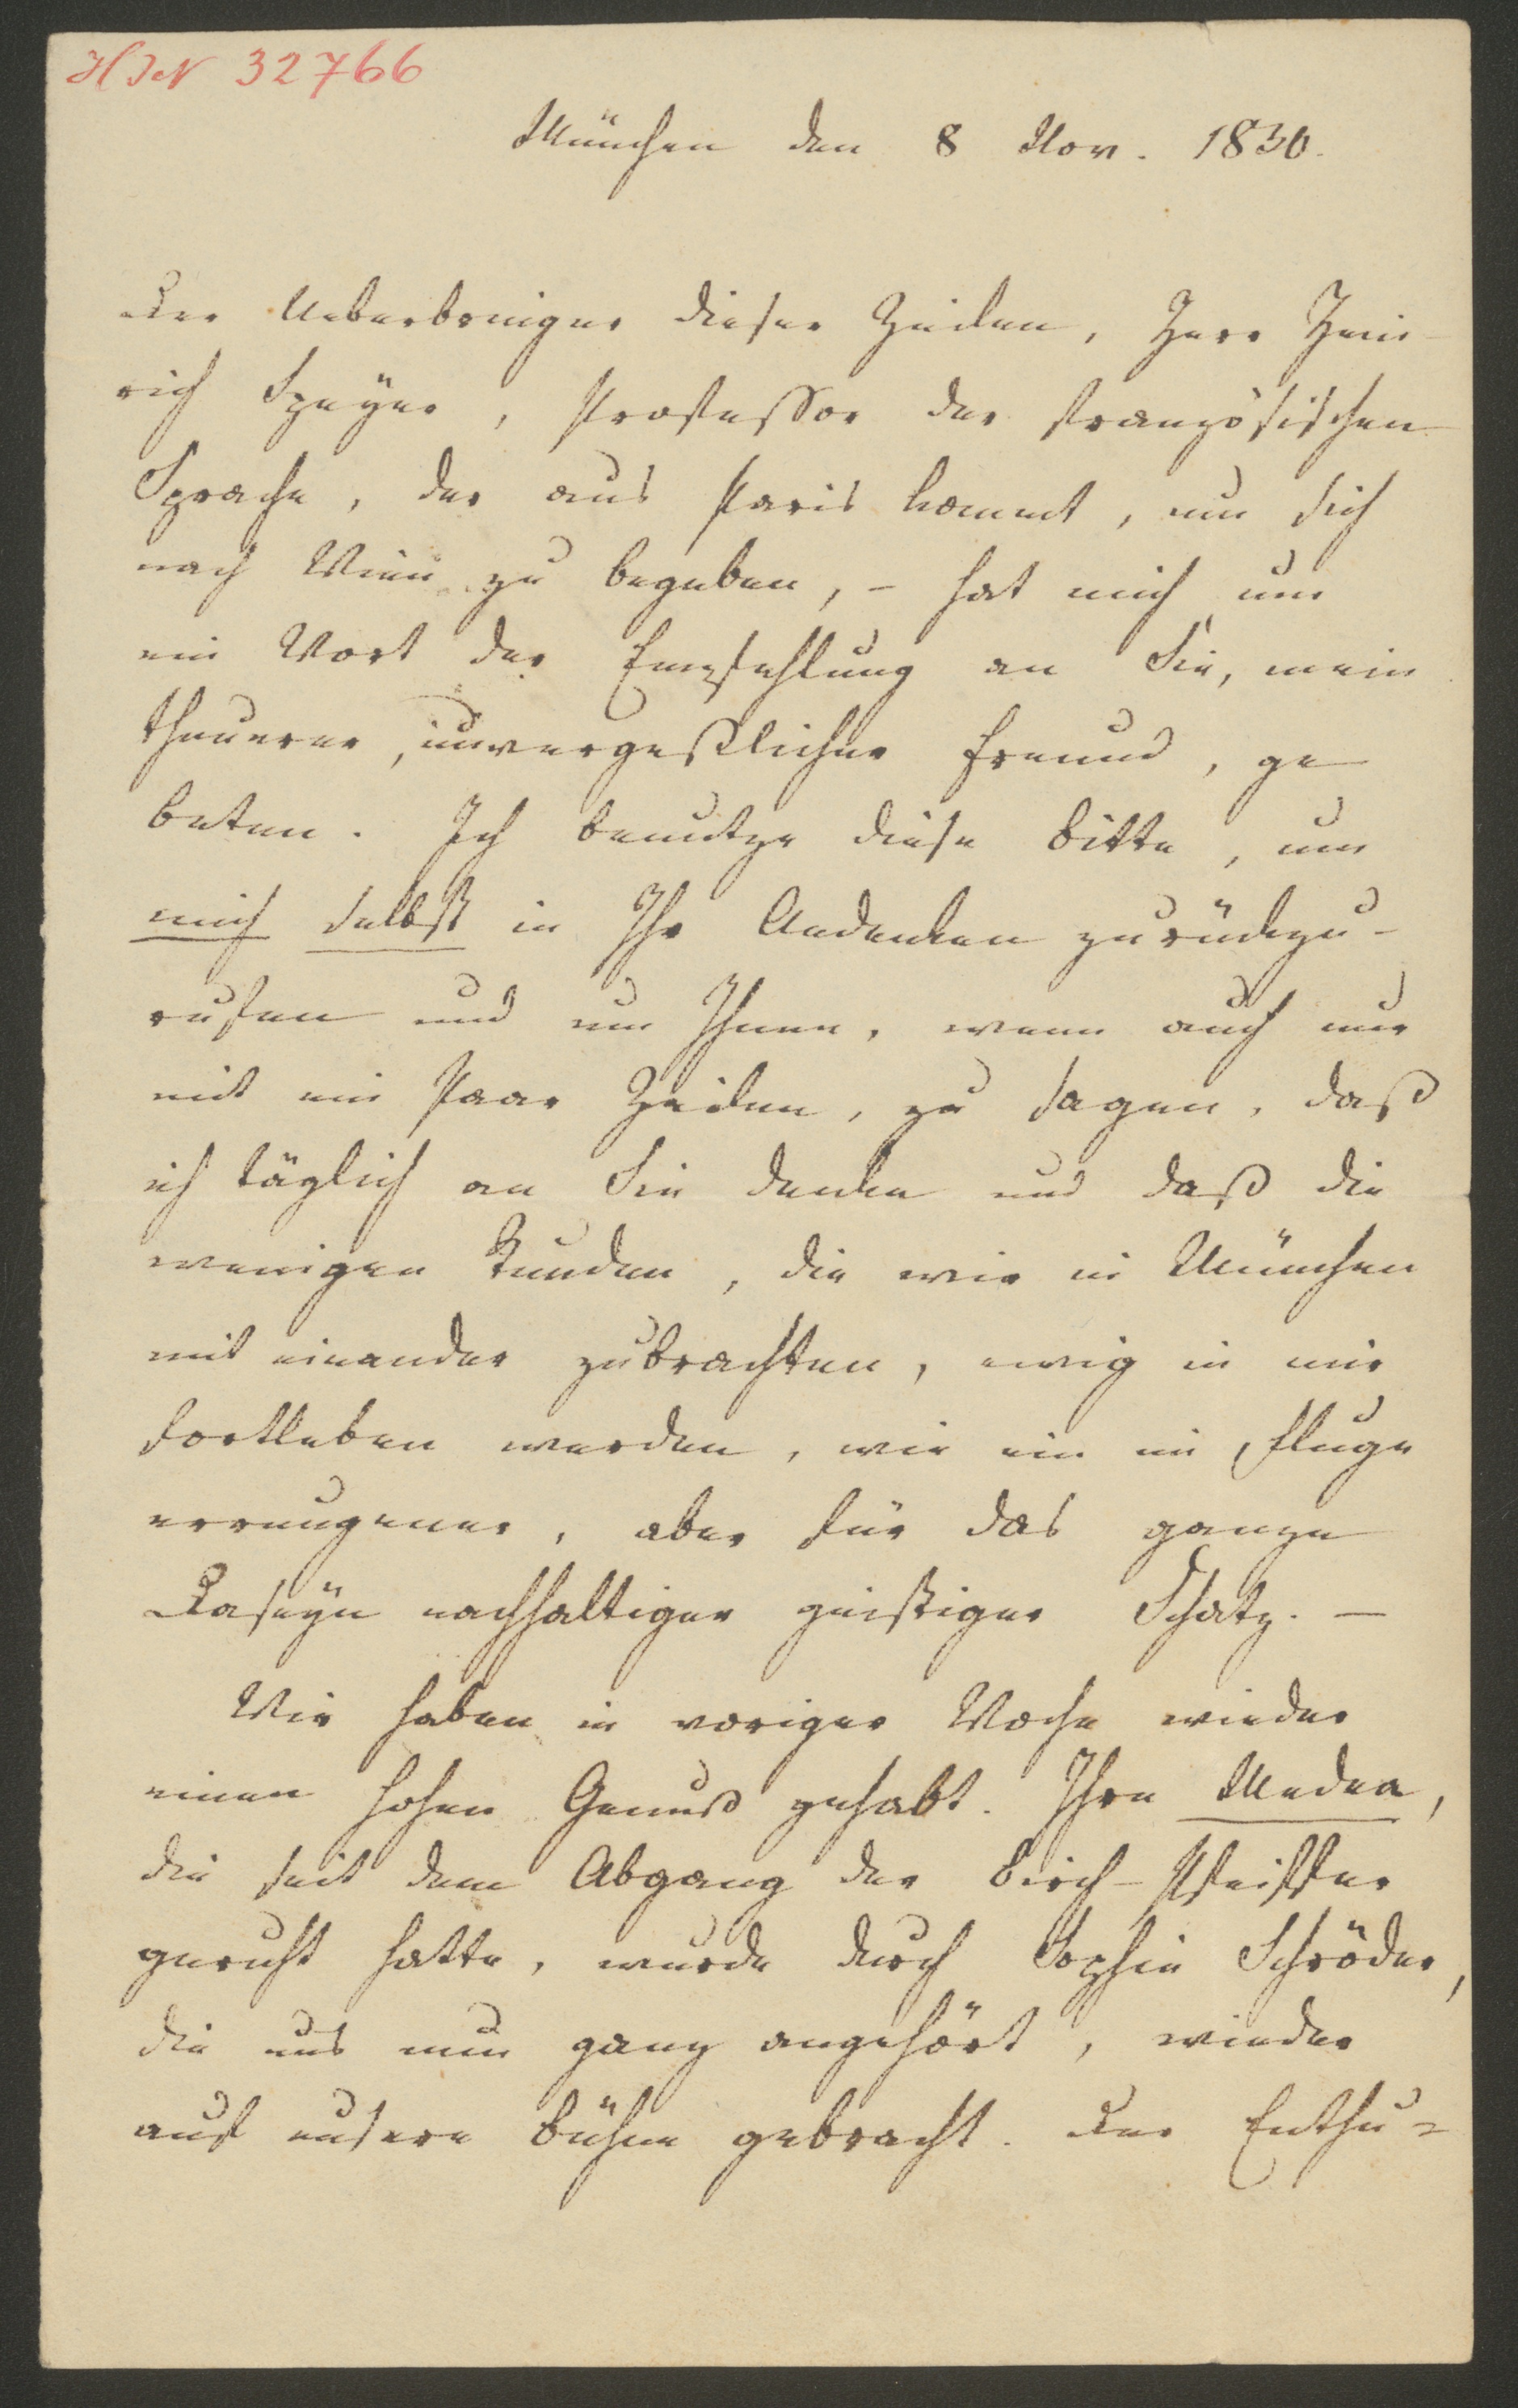 HIN 32766
München den 8 Nov. 1830.
Der Ueberbringer dieser Zeilen, Herr Hein-
rich Speyer, Professor der französischen
Sprache, der aus Paris kommt, um sich
nach Wien zu begeben, – hat mich um
ein Wort der Empfehlung an Sie, mein
theuerer, unvergeßlicher Freund, ge
beten. Ich benutze diese Bitte, um
mich selbst in Ihr Andenken zurückzu-
rufen und um Ihnen, wenn auch nur
mit ein Paar Zeilen, zu sagen, daß
ich täglich an Sie denke und daß die
wenigen Stunden, die wir in München
mit einander zubrachten, ewig in mir
fortleben werden, wie ein im Fluge
errungener, aber für das ganze
Daseyn nachhaltiger geistiger Schatz. –
Wir haben in voriger Woche wieder
einen hohen Genuß gehabt. Ihre Medea,
die seit dem Abgang der Birch-Pfeiffer
geruht hatte, wurde durch Sophie Schröder,
die uns nun ganz angehört, wieder
auf unsere Bühne gebracht. Der Enthu=